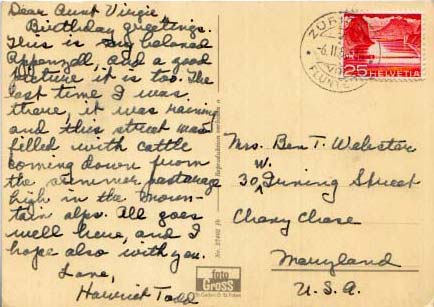 Dear Aunt Virgie
Birthday greetings.
This is my beloved
Appenzell, and a good
picture it is too. The
last time I was
there, it was raining
and this street was
filled with cattle
coming down from
the summer pasturage
high in the moun-
tain alps. All goes
well here, and I
hope also with you.
Love,
Harriet Todd
ZÜRICH
-6.II.
FLUNTERN
25 HELVETIA
Mrs. Ben T. Webster
W.
30, Irving Street
Chevy Chase
Maryland
U.S.A.
foto
GROSS